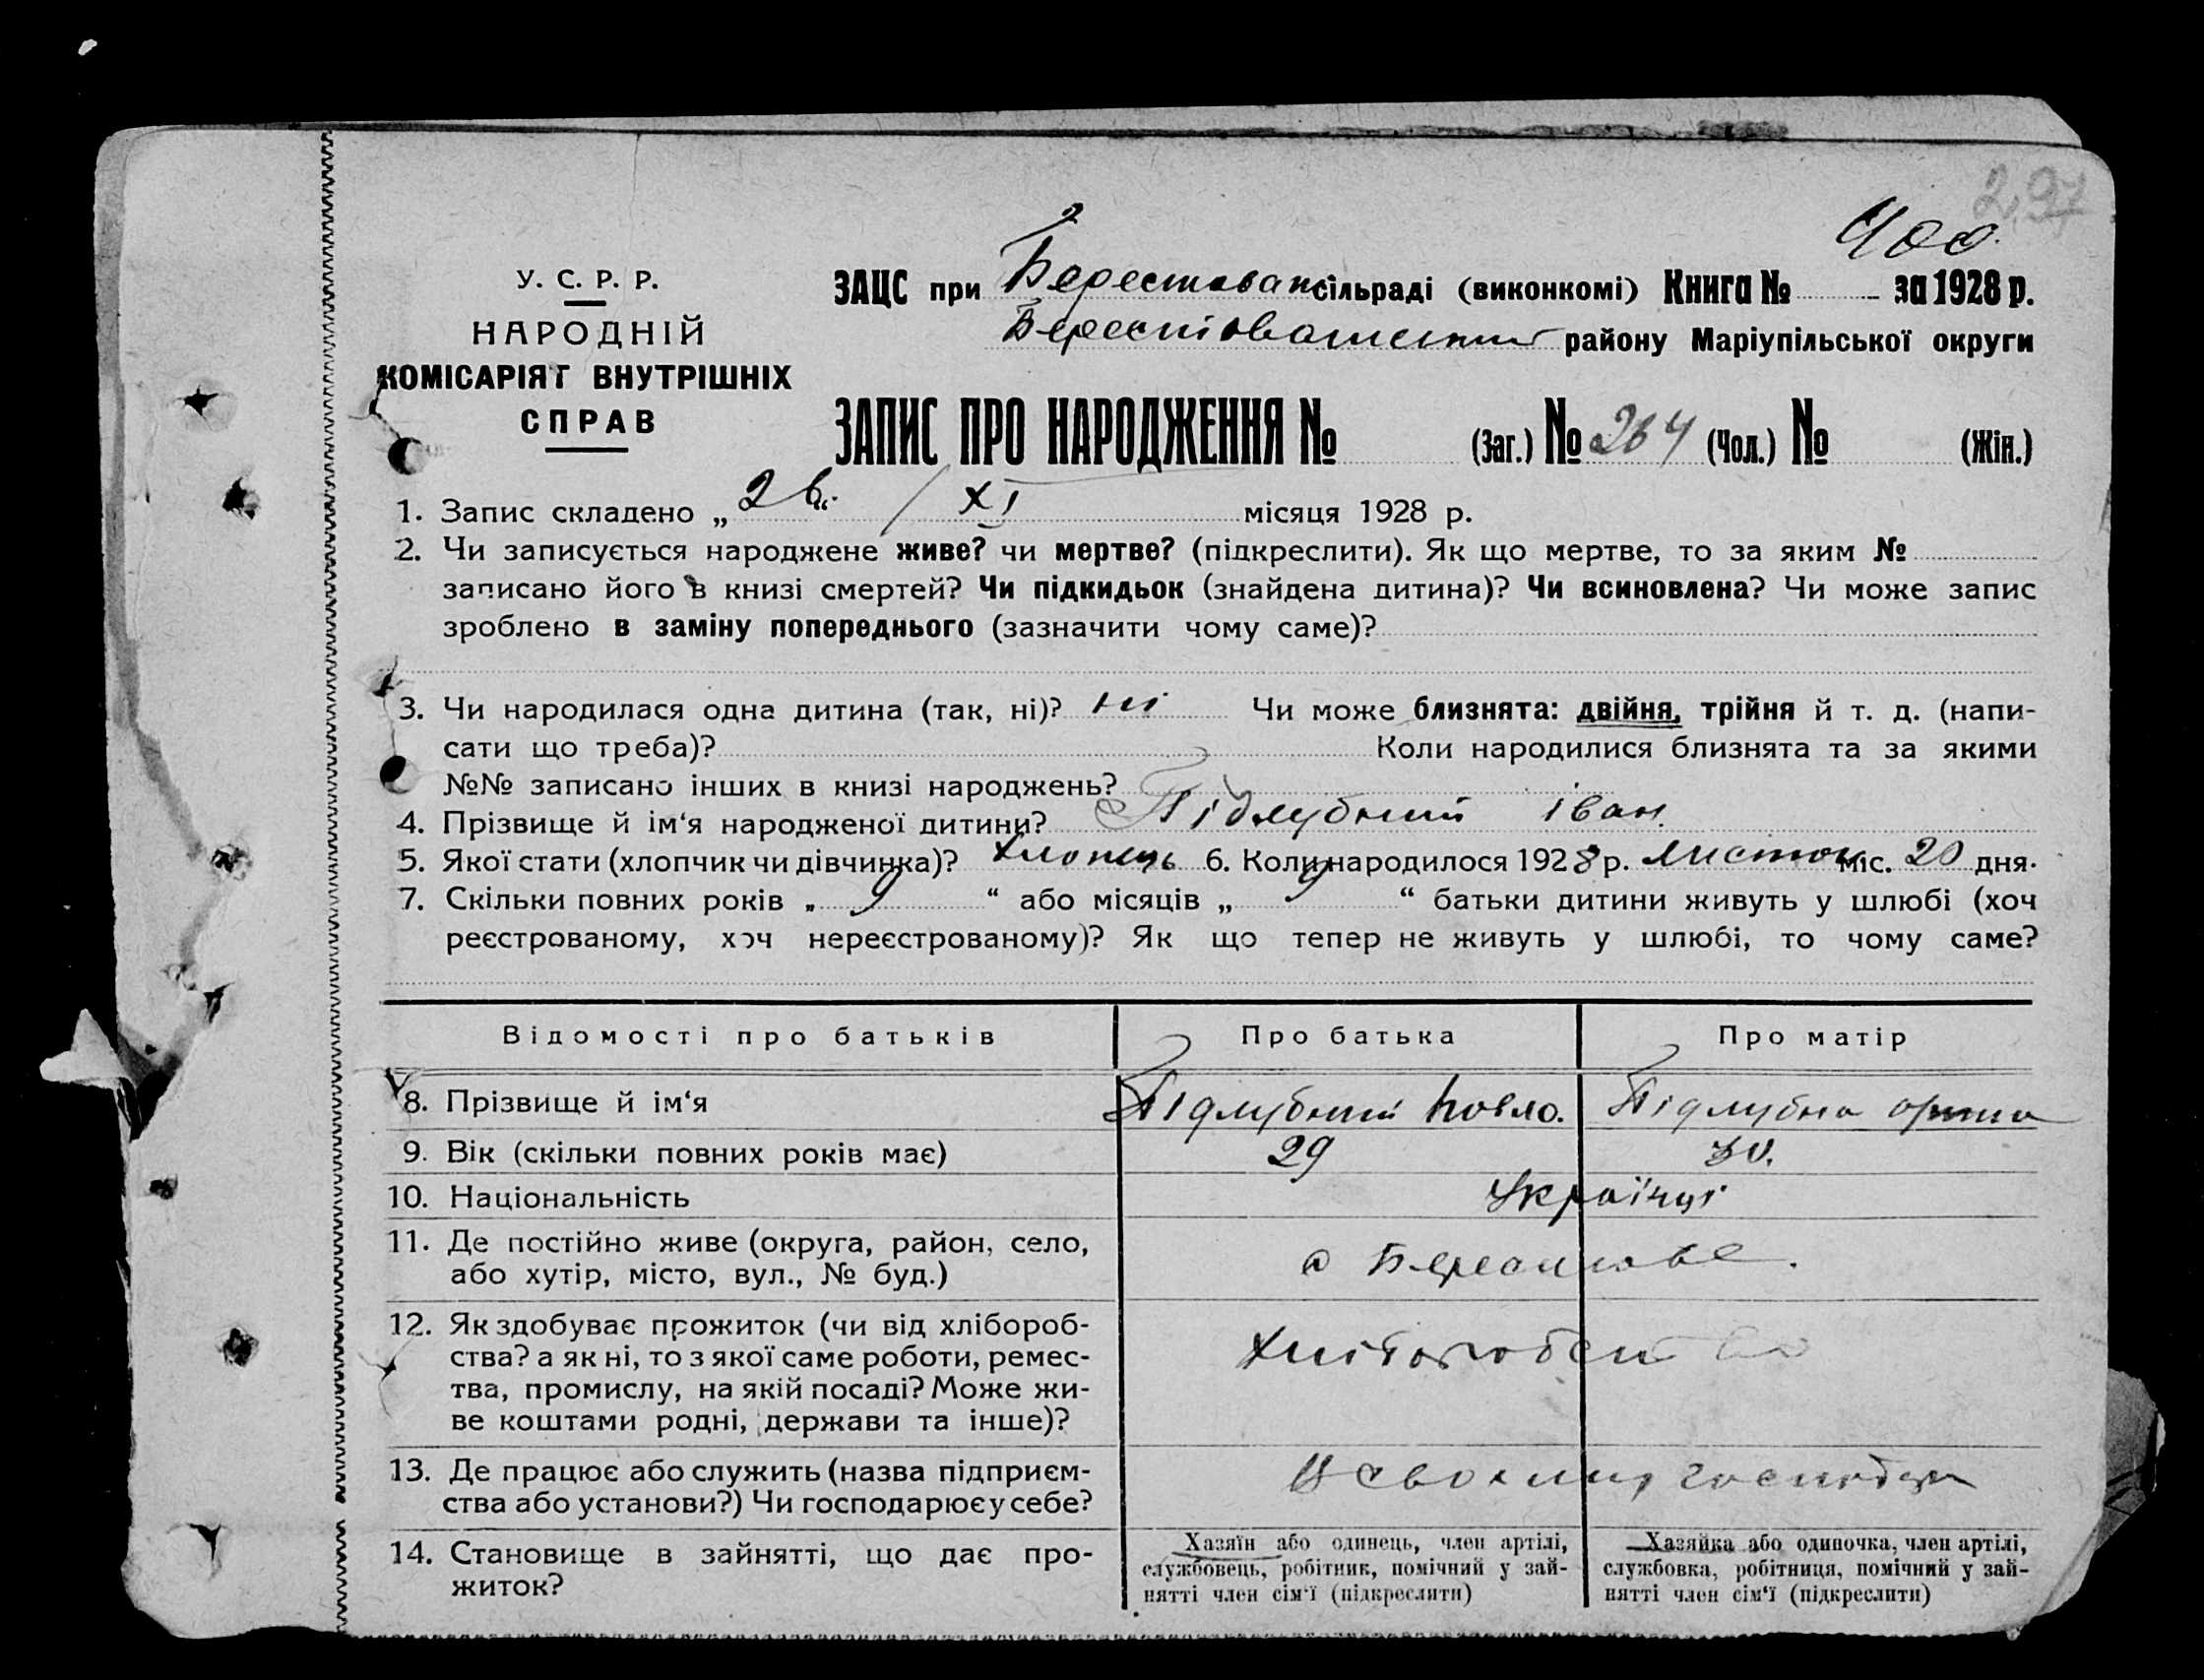 297
400
У. С. Р. Р.
НАРОДНІЙ
КОМІСАРІЯТ ВНУТРІШНІХ
СПРАВ
ЗАЦС при Берестован сільраді (виконкомі) Книга № за 1928 р.
району Маріупільської округи
ЗАПИС ПРО НАРОДЖЕННЯ № (Заг.) № 264 (Чол.) № (Жін.)
1. Запис складено „ 26 “ / XI місяця 1928 р.
2. Чи записується народжене живе? чи мертве? (підкреслити). Як що мертве, то за яким №
записано його в книзі смертей? Чи підкидьок (знайдена дитина)? Чи всиновлена? Чи може запис
зроблено в заміну попереднього (зазначити чому саме)?
3. Чи народилася одна дитина (так, ні)? ні Чи може близнята: двійня, трійня й т. д. (напи-
сати що треба)? Коли народилися близнята та за якими
№№ записано інших в книзі народжень?
4. Прізвище й ім‘я народженої дитини? Підлубний Іван.
5. Якої стати (хлопчик чи дівчинка)? хлопець 6. Коли народилося 1928 р. листоп міс. 20 дня.
7. Скільки повних років „ 9 “ або місяців „ 9 “ батьки дитини живуть у шлюбі (хоч
реєстрованому, хоч нереєстрованому)? Як що тепер не живуть у шлюбі, то чому саме?
Відомості про батьків Про батька Про матір
8. Прізвище й ім‘я Підлубний Павло. Підлубна
9. Вік (скільки повних років має) 29 30.
10. Національність Українці
11. Де постійно живе (округа, район, село,
або хутір, місто, вул., № буд.) с Берестове.
12. Як здобуває прожиток (чи від хлібороб-
ства? а як ні, то з якої саме роботи, ремес-
тва, промислу, на якій посаді? Може жи-
ве коштами родні, держави та інше)? Хліборобство
13. Де працює або служить (назва підприєм-
ства або установи?) Чи господарює у себе? В своєму господар
14. Становище в зайнятті, що дає про-
житок?
Хазяїн або одинець, член артілі,
службовець, робітник, помічний у зай-
нятті член сім‘ї (підкреслити)
Хазяйка або одиночка, член артілі,
службовка, робітниця, помічний у зай-
нятті член сім‘ї (підкреслити)